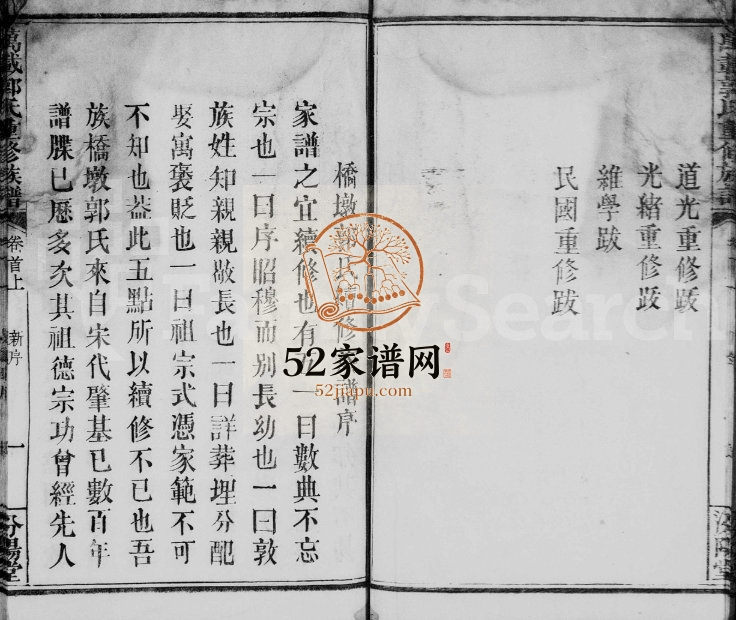 道光重修跋
光緒重修跋
維學跋
民國重修跋
橋墩郭氏續修譜序
家譜之宜續修也有五一曰數典不忘
宗也一曰序昭穆而別長幼也一曰敦
族姓知親親敬長也一曰詳葬埋分配
娶寓褒貶也一曰祖宗式憑家範不可
不知也益此五點所以續修不已也吾
族橋墩郭氏來自宋代肇基已數百年
譜牒已歷多次其祖德宗功曾經先人
萬載郭氏重修族譜
卷首上
新序
一
汾陽堂
萬載郭氏重修族譜
汾陽堂
FamilySearch
52家谱网
52jiapu.com